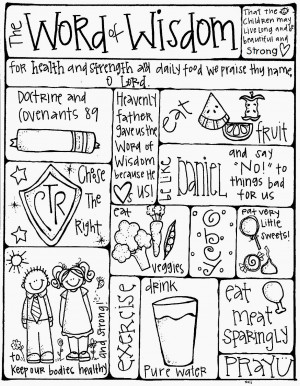 The WORD of WISDOM
That the
Children may
live long and be
beautiful and
Strong
for health and strength and daily food we praise thy name,
O Lord.
Doctrine and
Covenants 89
Heavenly
Father
gave us the
Word of
Wisdom
because He
us!
eat
fruit
be like
Daniel
and say
"No!" to
things bad
for us
Chose
The
Right
CTR
eat
veggies
eat very
little
sweets!
to
keep our bodies healthy
and strong!
exercise
drink
Pure water
eat
meat
sparingly
PRAY!